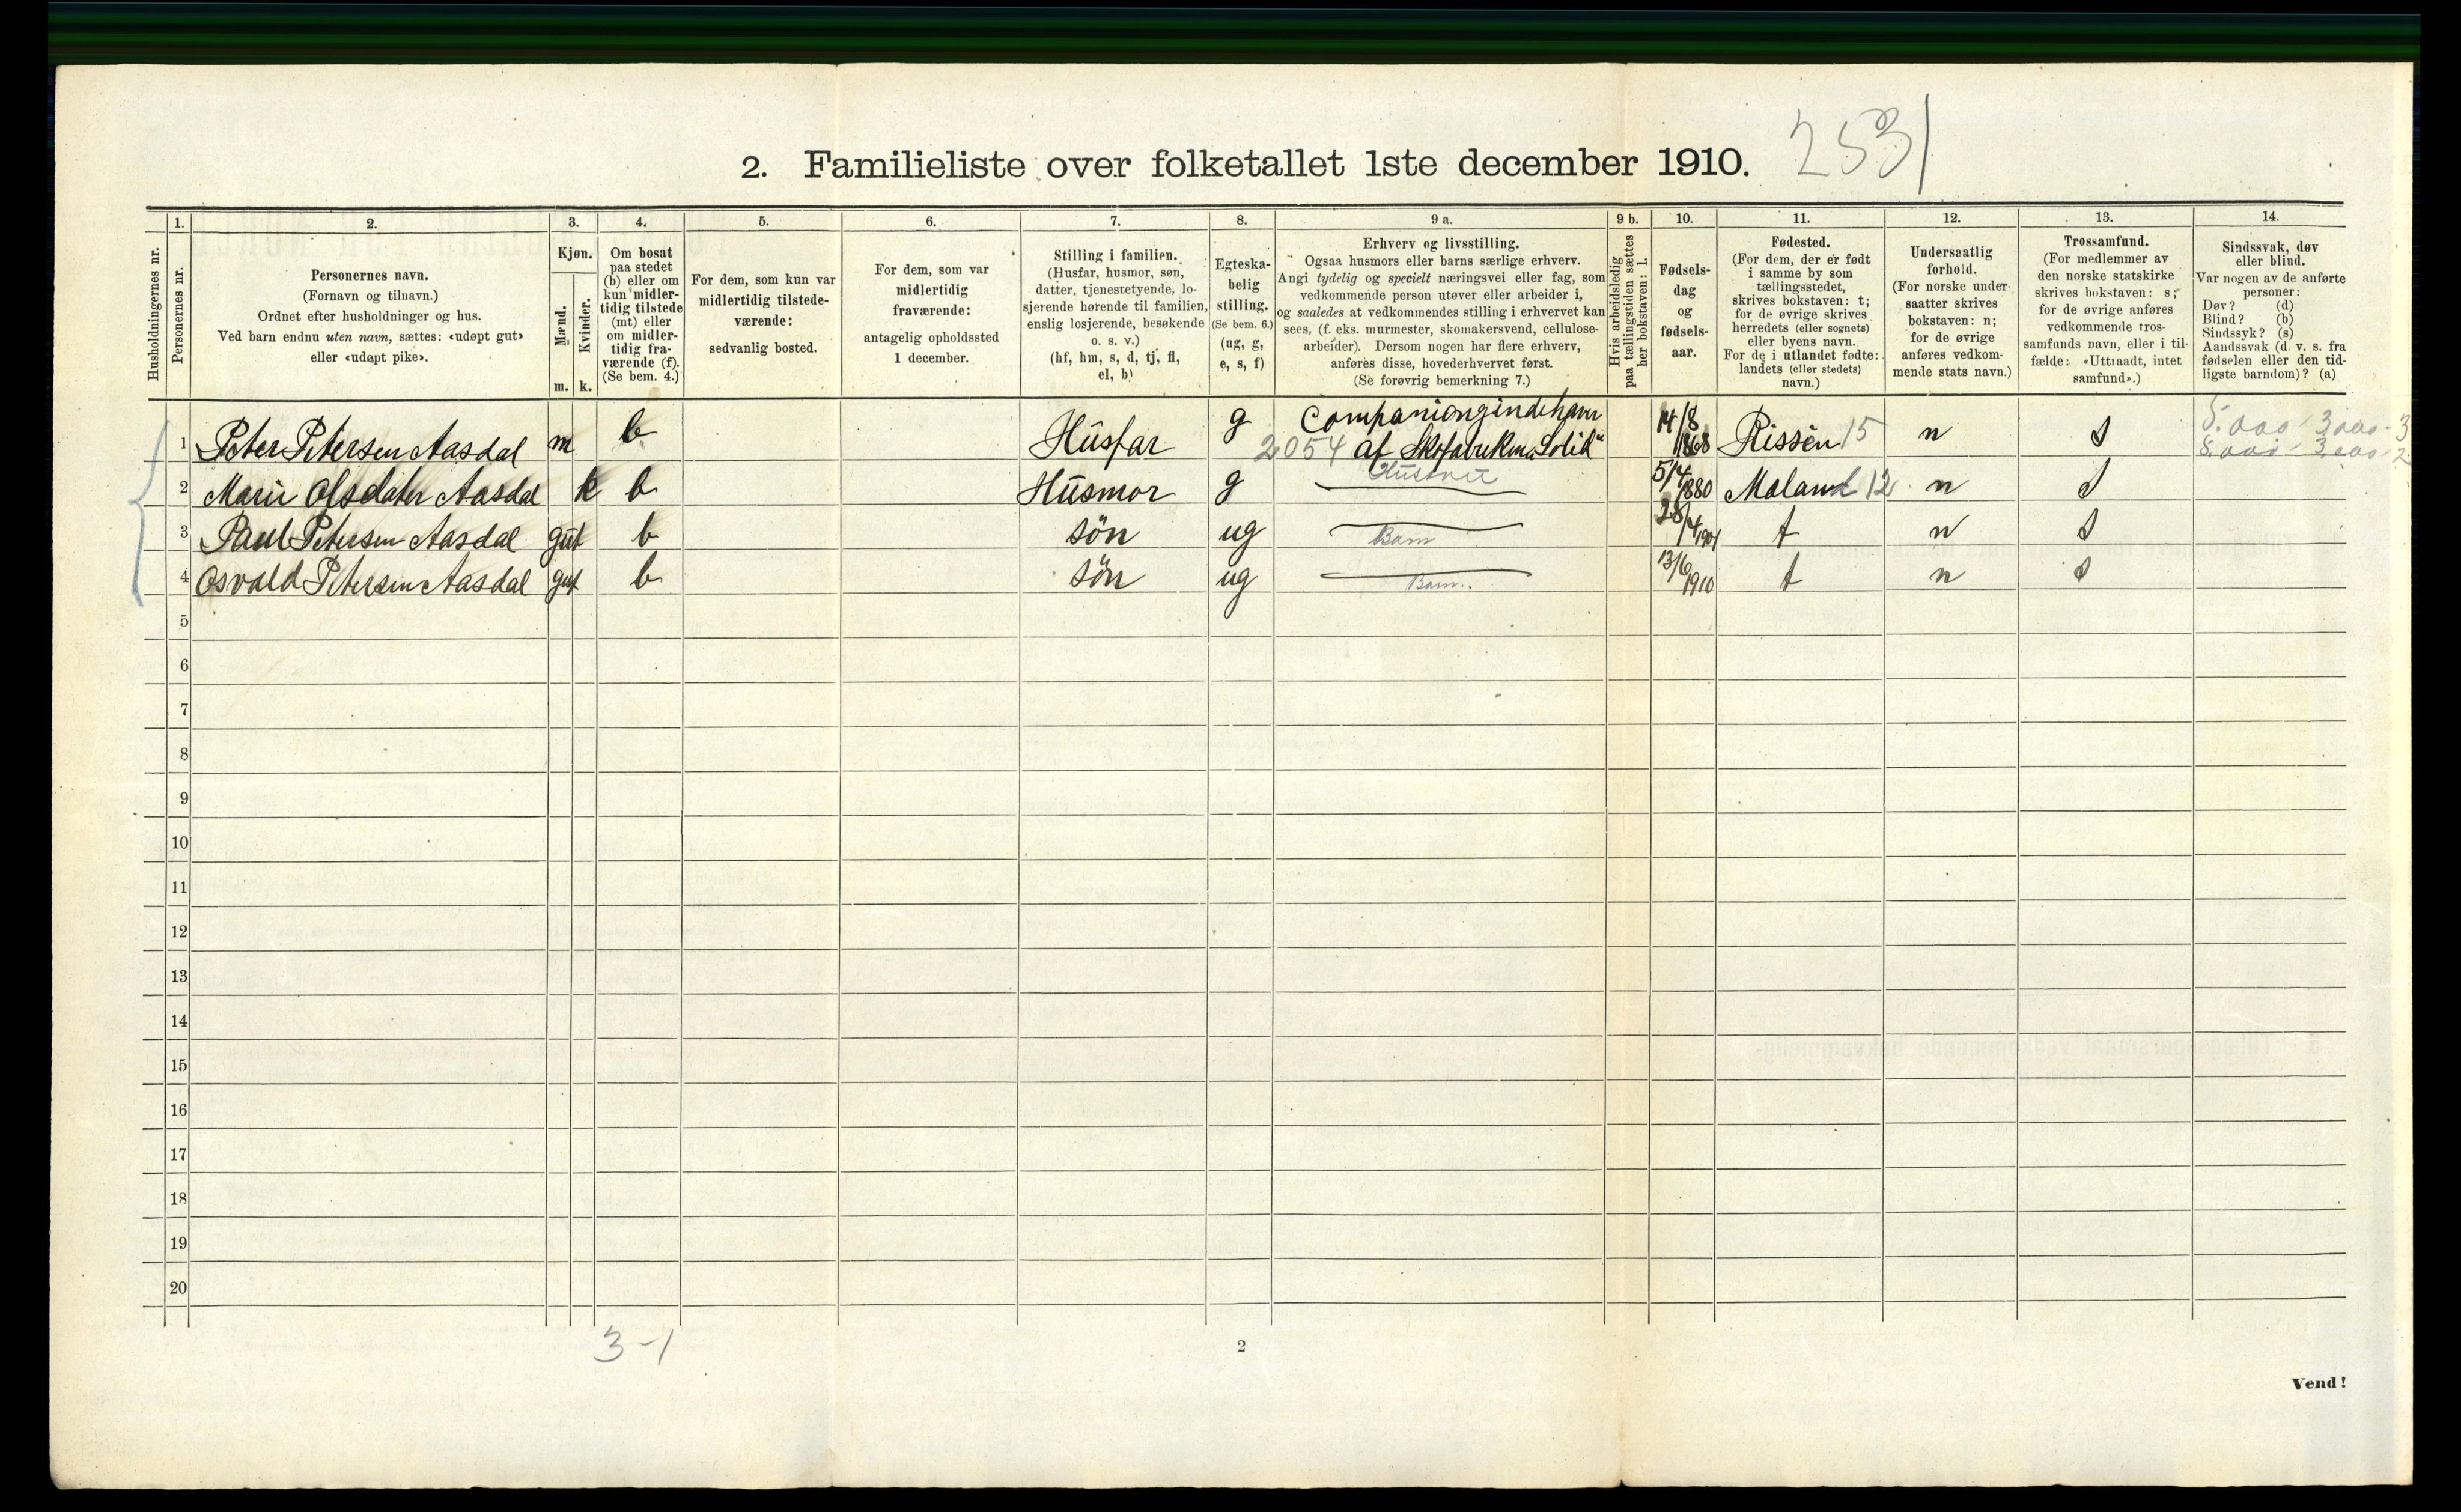 2. Familieliste over folketallet 1ste december 1910. 2531
1. 2. 3. 4. 5. 6. 7. 8. 9 a. 9 b. 10. 11. 12. 13. 14.
Husholdningernes nr.
Personernes nr.
Personernes navn.
(Fornavn og tilnavn.)
Ordnet efter husholdninger og hus.
Ved barn endnu uten navn, sættes: «udøpt gut»
eller «udøpt pike».
Kjøn.
Mænd.
Kvinder.
m. k.
Om bosat
paa stedet
(b) eller om
kun midler-
tidig tilstede
(mt) eller
om midler-
tidig fra-
værende (f).
(Se bem. 4.)
For dem, som kun var
midlertidig tilstede-
værende:
sedvanlig bosted.
For dem, som var
midlertidig
fraværende:
antagelig opholdssted
1 december.
Stilling i familien.
(Husfar, husmor, søn,
datter, tjenestetyende, lo-
sjerende hørende til familien,
enslig losjerende, besøkende
o. s. v.)
(hf, hm, s, d, tj, fl,
el, b)
Egteska-
belig
stilling.
(Se bem. 6.)
(ug, g,
e, s, f)
Erhverv og livsstilling.
Ogsaa husmors eller barns særlige erhverv.
Angi tydelig og specielt næringsvei eller fag, som
vedkommende person utøver eller arbeider i,
og saaledes at vedkommendes stilling i erhvervet kan
sees, (f. eks. murmester, skomakersvend, cellulose-
arbeider). Dersom nogen har flere erhverv,
anføres disse, hovederhvervet først.
(Se forøvrig bemerkning 7.)
Hvis arbeidsledig
paa tællingstiden sættes
her bokstaven: l.
Fødsels-
dag
og
fødsels-
aar.
Fødested.
(For dem, der er født
i samme by som
tællingsstedet,
skrives bokstaven: t;
for de øvrige skrives
herredets (eller sognets)
eller byens navn.
For de i utlandet fødte:
landets (eller stedets)
navn.)
Undersaatlig
forhold.
(For norske under-
saatter skrives
bokstaven: n;
for de øvrige
anføres vedkom-
mende stats navn.)
Trossamfund.
(For medlemmer av
den norske statskirke
skrives bokstaven: s;
for de øvrige anføres
vedkommende tros-
samfunds navn, eller i til-
fælde: «Uttraadt, intet
samfund».)
Sindssvak, døv
eller blind.
Var nogen av de anførte
personer:
Døv? (d)
Blind? (b)
Sindssyk? (s)
Aandssvak (d. v. s. fra
fødselen eller den tid-
ligste barndom)? (a)
1 Peter Petersen Aasdal m b Húsfar g Companiongindehaver 2054 af Skofabrikken "Solid" 14/8 1868 Rissen 15 n s 5.000 - 3000 - 3
8.000 - 3.000 - 2
2 Marie Olsdater Aasdal k b Húsmor g Hustru 5/4 1880 Moland 12 n s
3 Paul Petersen Aasdal gut b søn ug Barn 28/4 1901 t n s
4 Osvald Petersen Aasdal gut b søn ug Barn 13/6 1910 t n s
5
6
7
8
9
10
11
12
13
14
15
16
17
18
19
20
3-1
2
Vend!